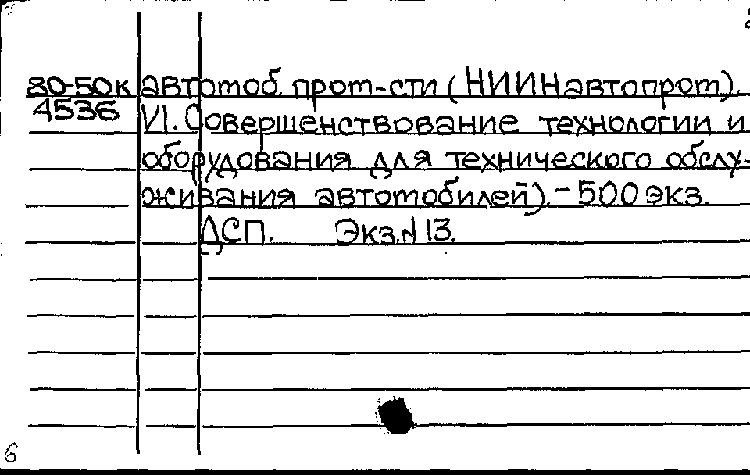 80-50к автомоб. пром-сти (НИИНавтопром).
4536 VI. Совершенствование технологии и
оборудования для технического обслу-
живания автомобилей). - 500 экз.
ДСП. Экз. № 13.
6